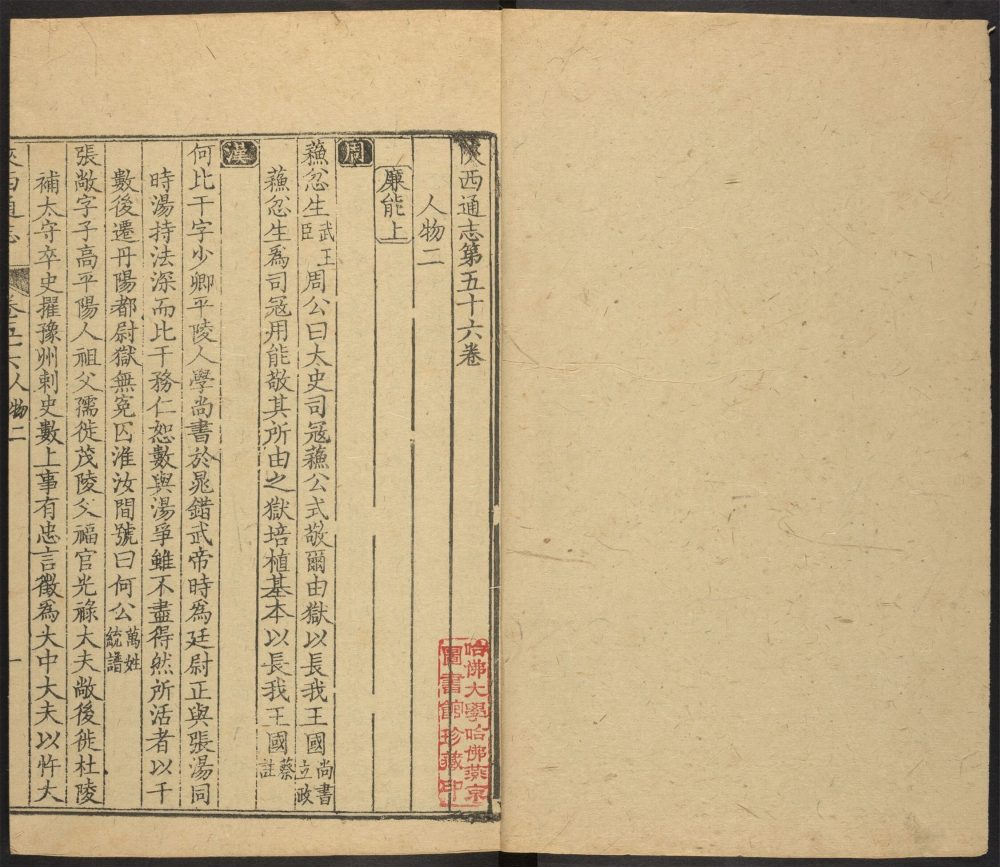 陝西通志第五十六卷
人物二
廉能上
周
蘓忿生武王臣周公曰太史司冦蘓公式敬爾由獄以長我王國尚書立政
蘓忿生爲司冦用能敬其所由之獄培植基本以長我王國蔡註
漢
何比干字少卿平陵人學尚書於晁錯武帝時爲廷尉正與張湯同
時湯持法深而比干務仁恕數與湯爭雖不盡得然所活者以千
數後遷丹陽都尉獄無冤囚淮汝間號曰何公萬姓統譜
張敞字子高平陽人祖父孺徙茂陵父福官光祿大夫敞後徙杜陵
補太守卒史擢豫州刺史數上事有忠言徵爲太中大夫以忤大
陝西通志 卷五十六人物二 一
哈佛大學哈佛燕京
圖書館珍藏印